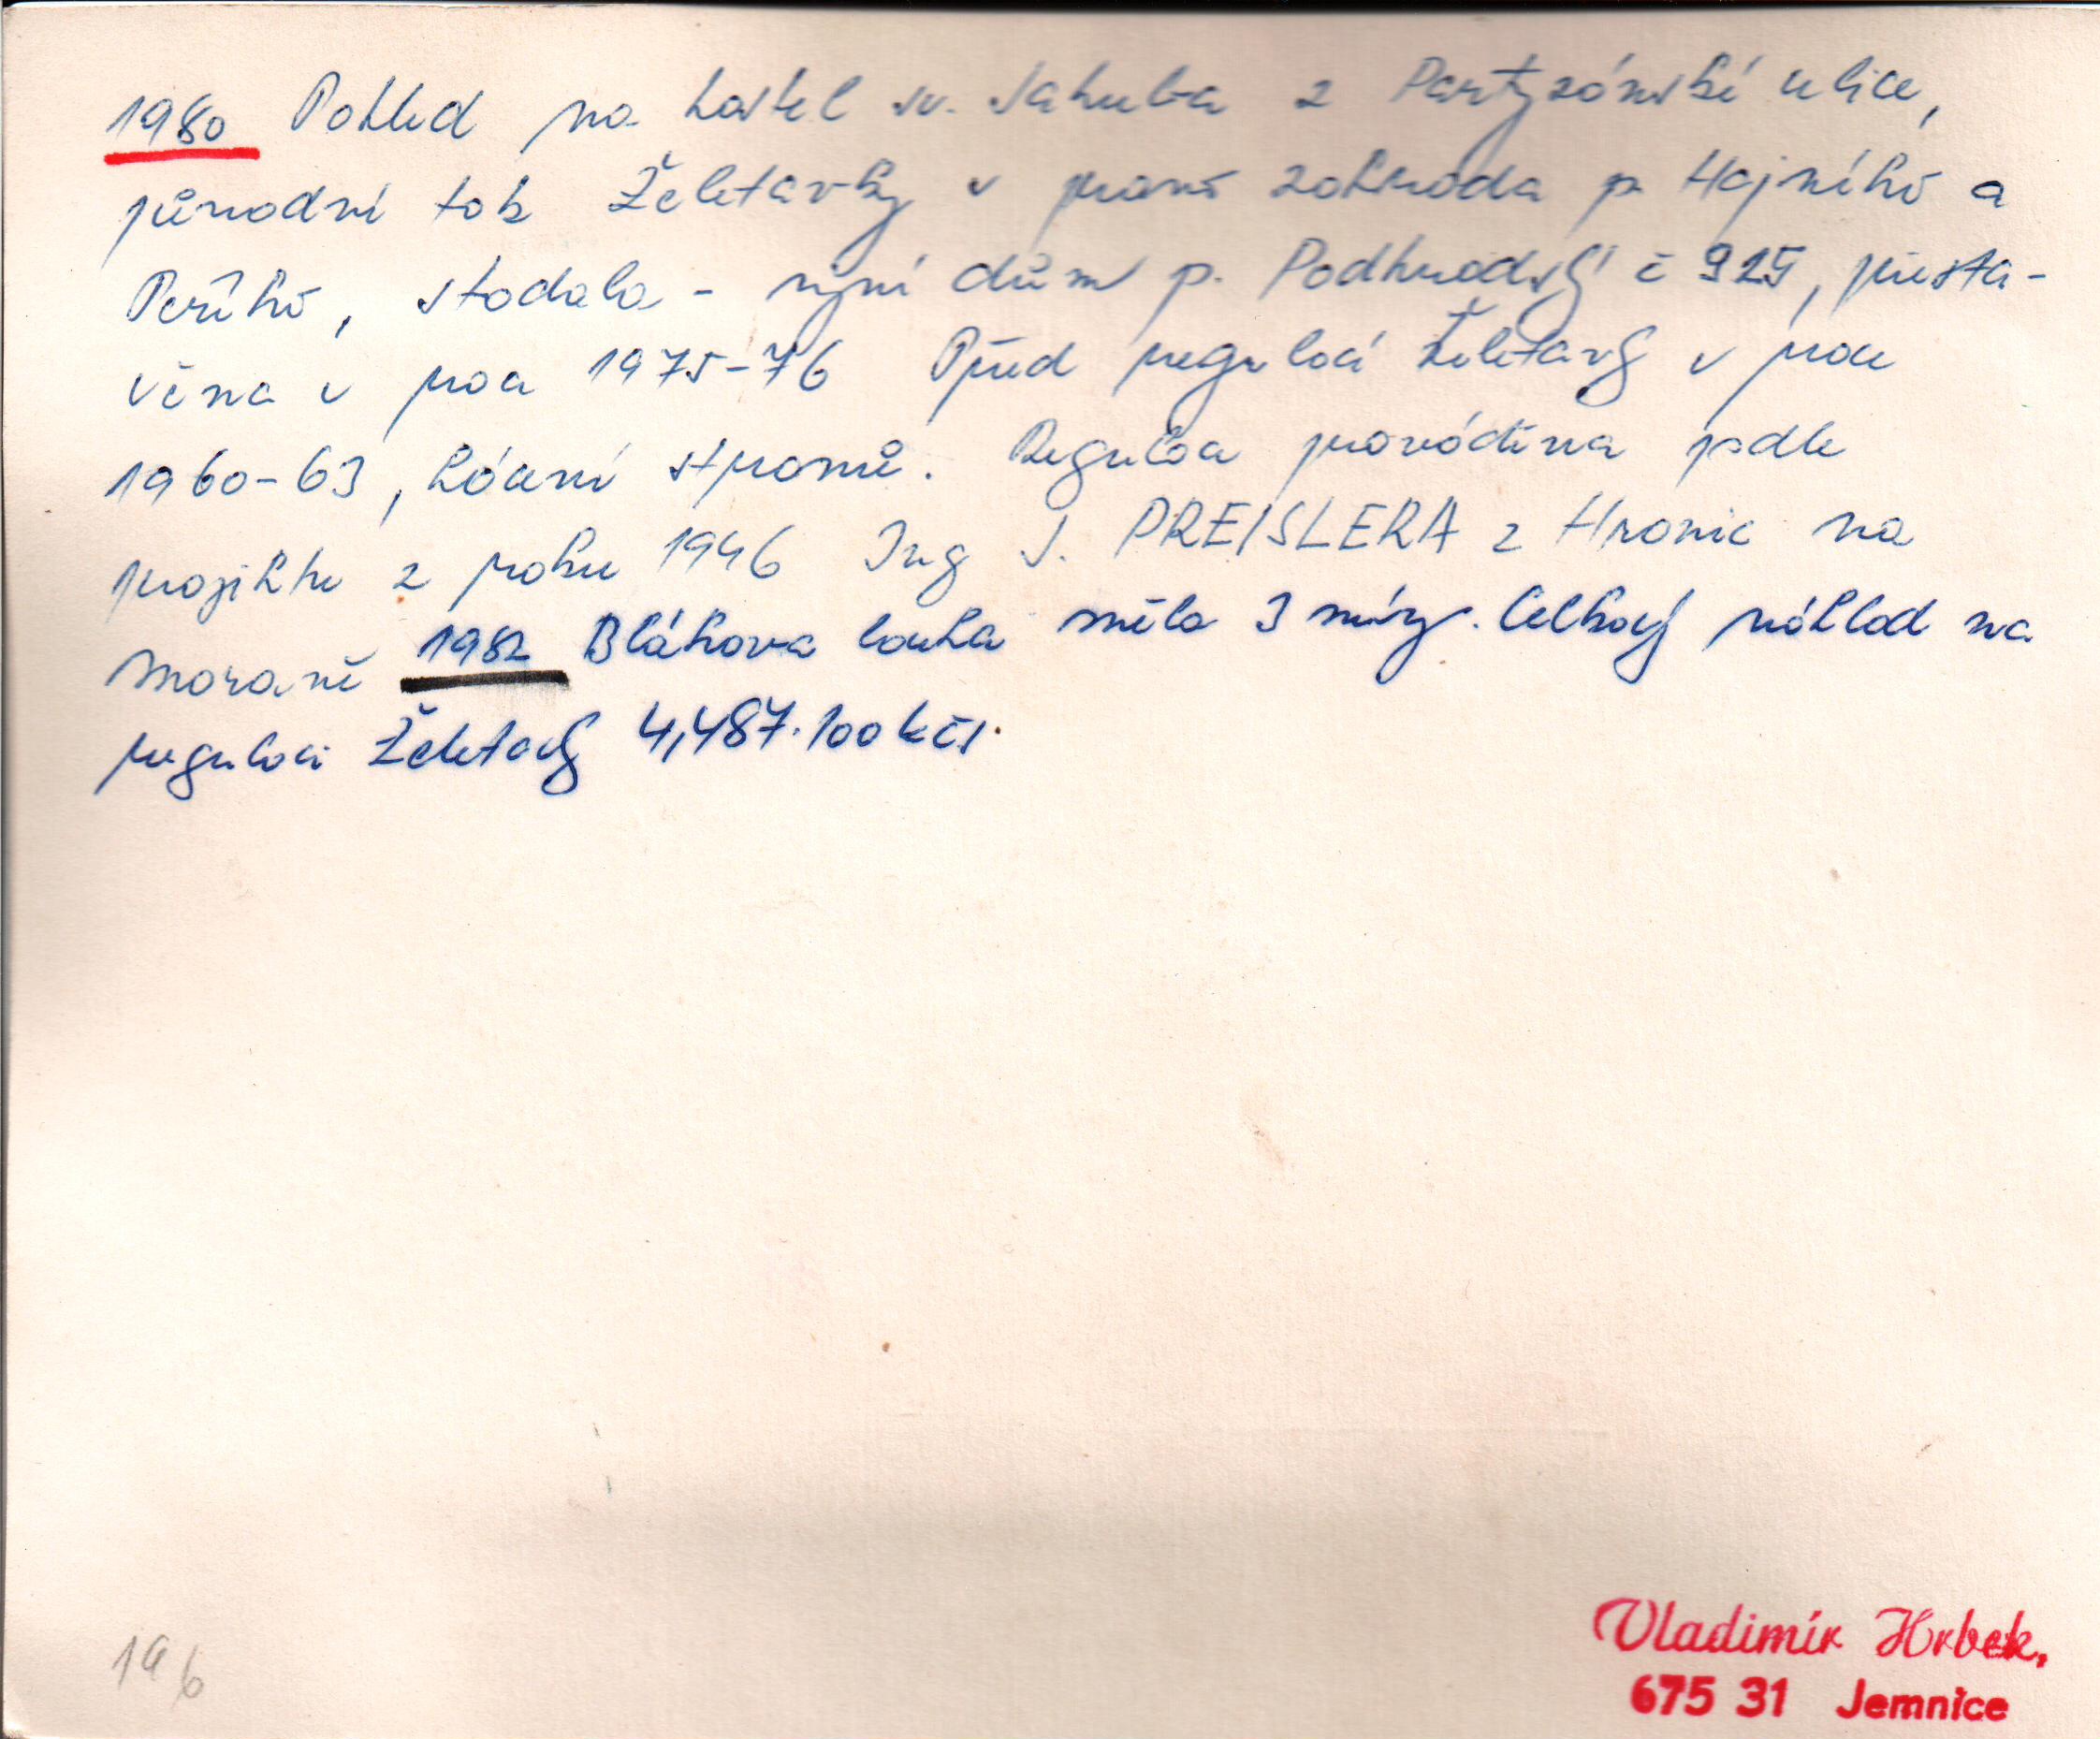 1980 Pohled na kostel sv. Jakuba z Partyzánské ulice,
původní tok Želetavky v pravo zahrada p. Hajného a
Peřího, stodola - nyní dům p. Podhradský č 925, přesta-
věna v roce 1975-76 Před regulací Želetavky v roce
1960-63, kácení stromů. Regulace prováděna podle
projektu z roku 1946 Ing J. PREISLERA z Hranic na
Moravě 1982 Bláhova louka měla 3 míry. Celkový náklad na
regulaci Želetavky 4,487.100 kčs.
196
Vladimír Hrbek,
675 31 Jemnice